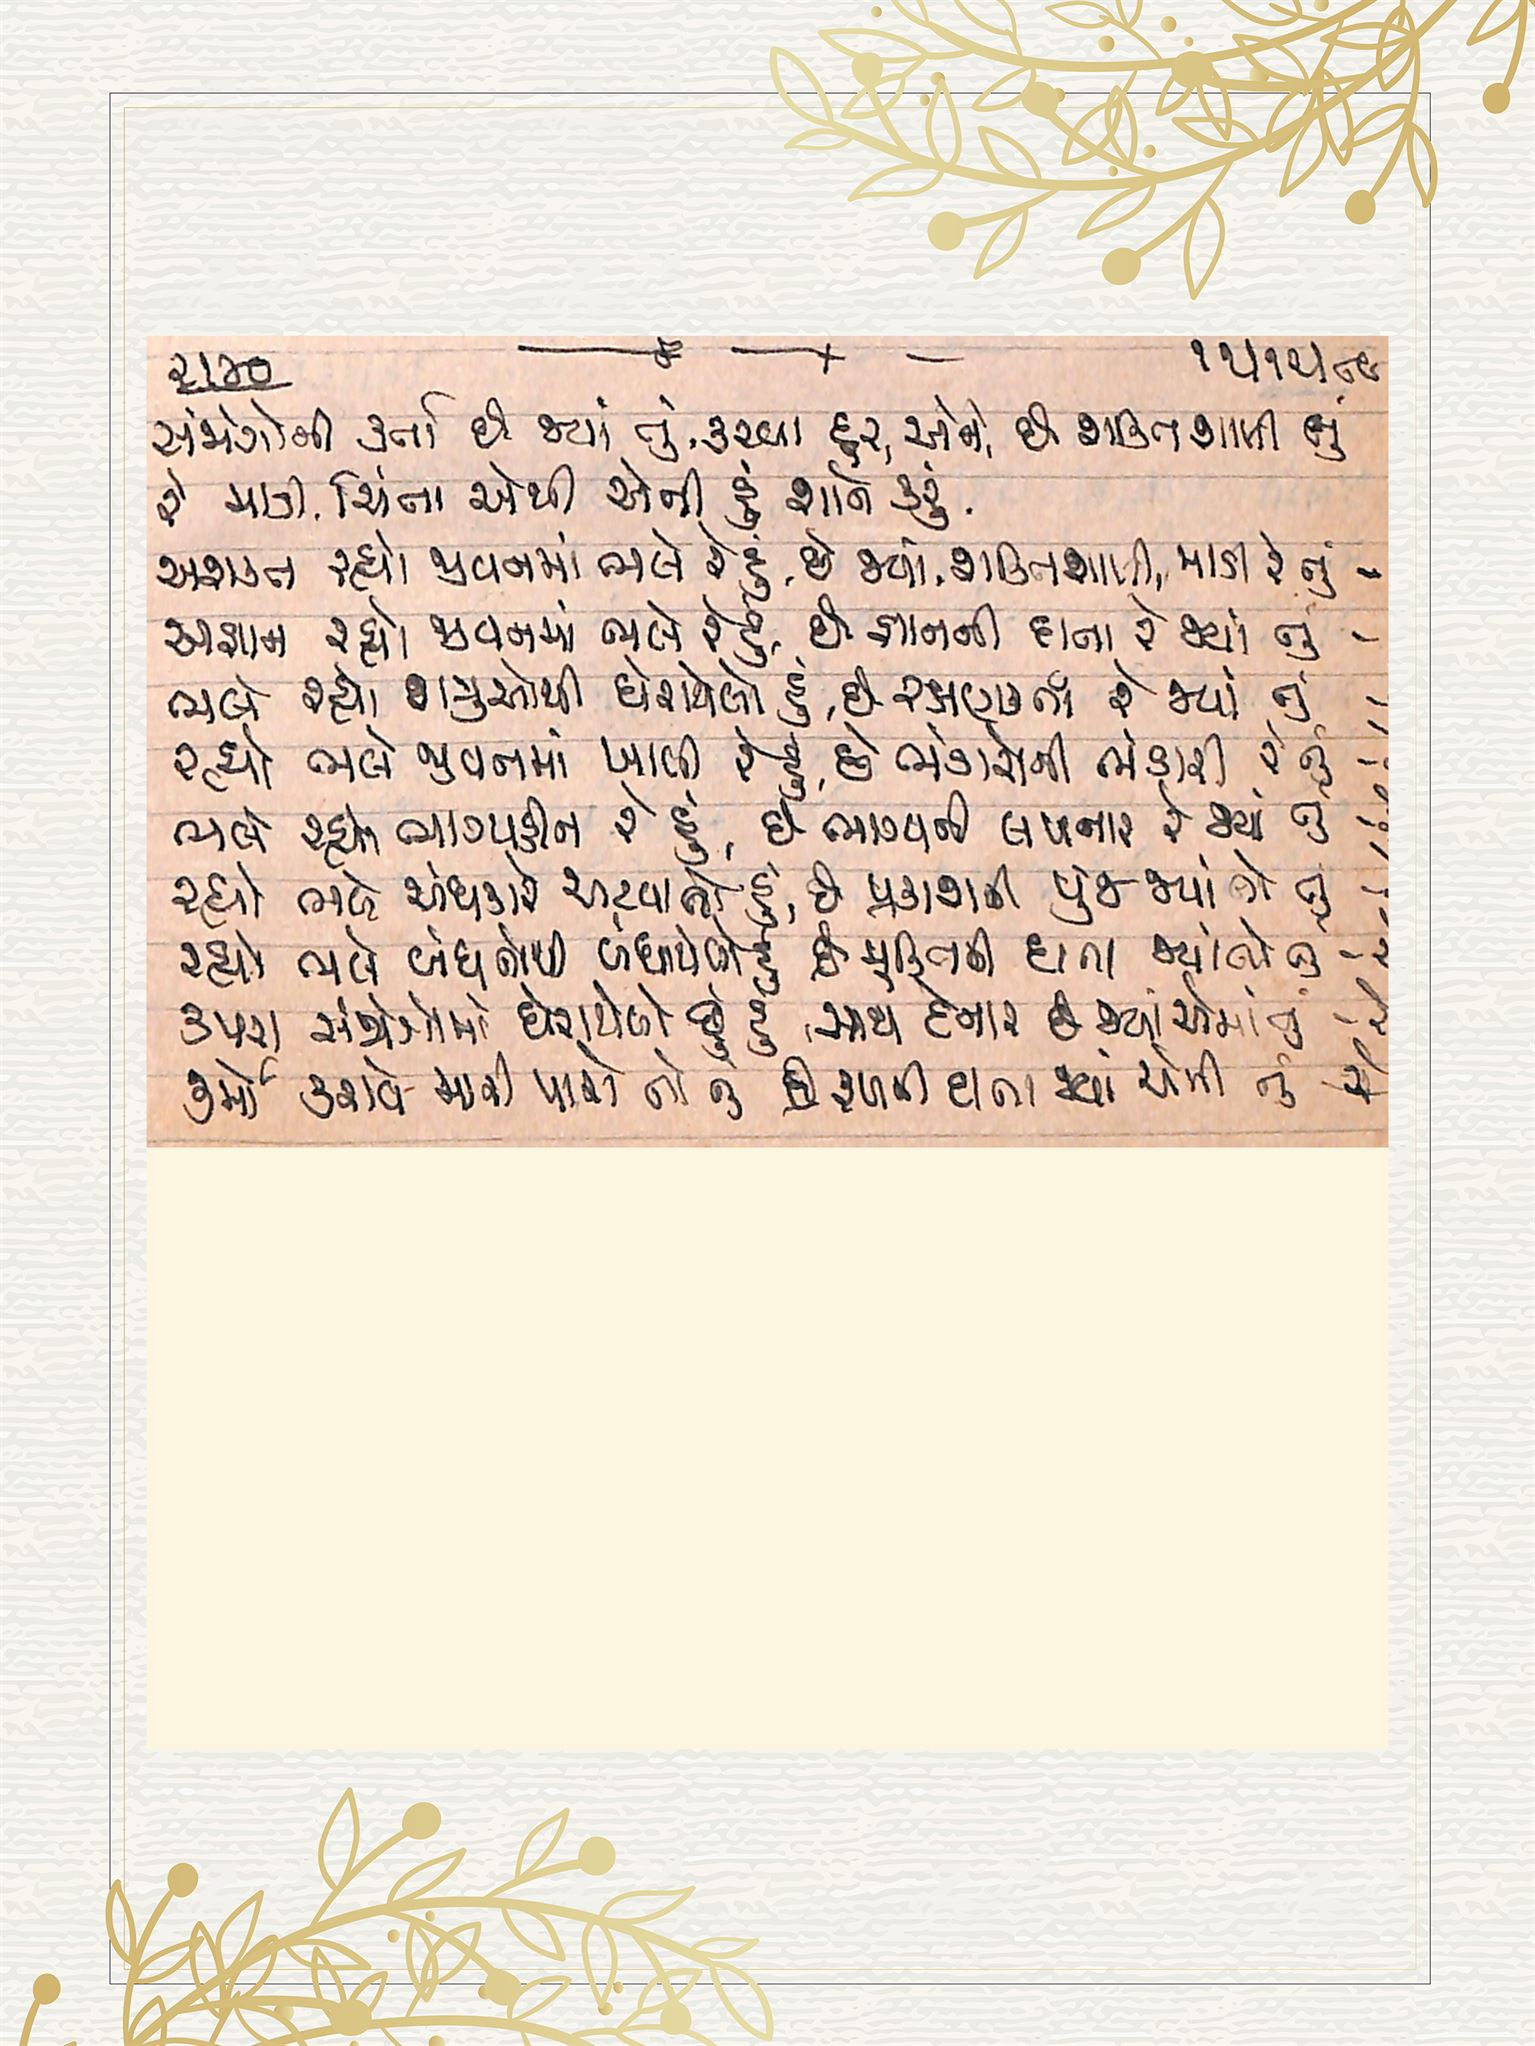 ૧૫૧૫૯૮
સંજોગોની કર્તા છે જ્યાં તું, કરવા દૂર, એને, છે શક્તિશાળી તું
રે માડી. ચિંતા એથી એની હું શાને કરું.
અશક્ત રહ્યો જીવનમાં ભલે રે હું, છે જ્યાં, શક્તિશાળી, માડી રે તું -
અજ્ઞાન રહ્યો જીવનમાં ભલે રે હું, છે જ્ઞાનની દાતા રે જ્યાં તું -
ભલે રહ્યો શત્રુઓથી ઘેરાયેલો હું, છે રક્ષણકર્તા રે જ્યાં તું -
રહ્યો ભલે જીવનમાં ખાલી રે હું, છે ભંડારોની ભંડારી રે તું -
ભલે રહ્યો ભાગ્યહીન રે હું, છે ભાગ્યની લખનાર રે જ્યાં તું -
રહ્યો ભલે અંધકારે અટવાતો હું, છે પ્રકાશની પુંજ જ્યાં તો તું -
રહ્યો ભલે બંધનોથી બંધાયેલો હું છે મુક્તિની દાતા જ્યાં તો તું - રે
કપરા સંજોગોમાં ઘેરાયેલો છું હું, સાથ દેનાર છે જ્યાં એમાં તું - રે
કર્મો કરાવે મારી પાસે તો તું છે ફળની દાતા જ્યાં એની તું - રે